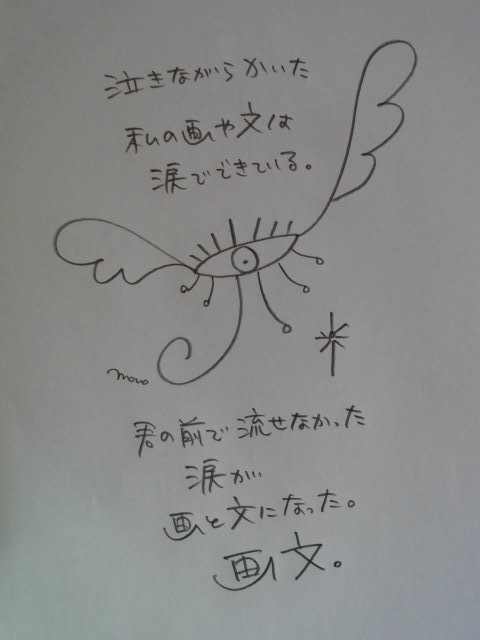 泣きながらかいた
私の画や文は
涙でできている。
momo
君の前で流せなかった
涙が
画と文になった。
画文。